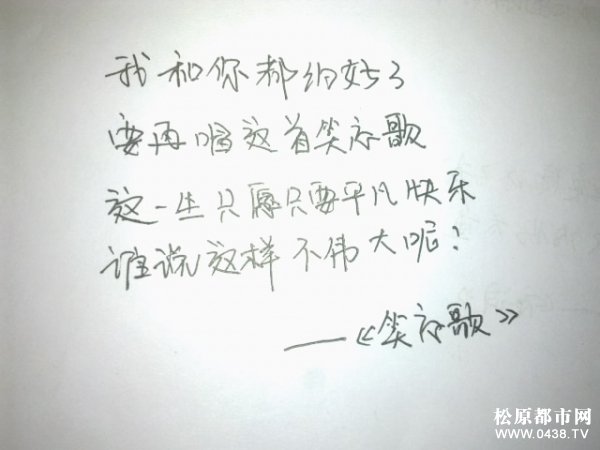 我和你都约好了
要再唱这首笑忘歌
这一生只愿只要平凡快乐
谁说这样不伟大呢？
——《笑忘歌》
松原都市网
WWW.0438.TV